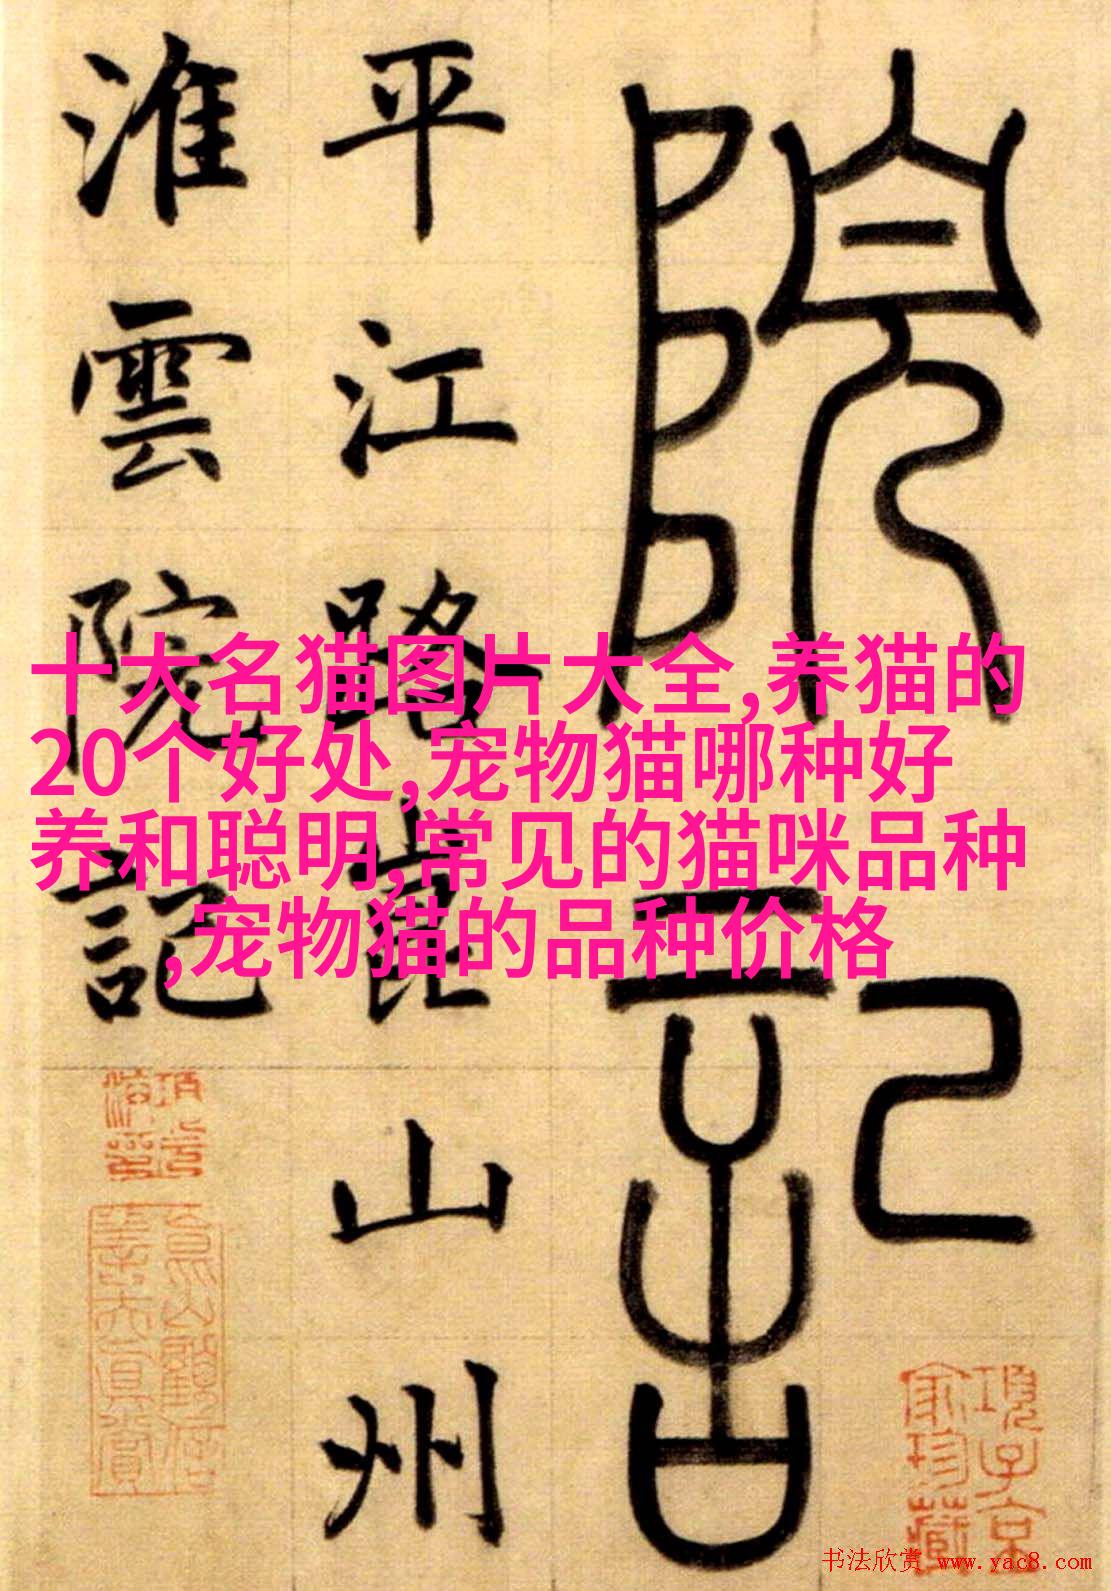 院記
平江路崑山州
淮雲院記
十大名猫图片大全,养猫的
20个好处,宠物猫哪种好
养和聪明,常见的猫咪品种
,宠物猫的品种价格
項子京
家珍藏
书法欣赏 www.yac8.com